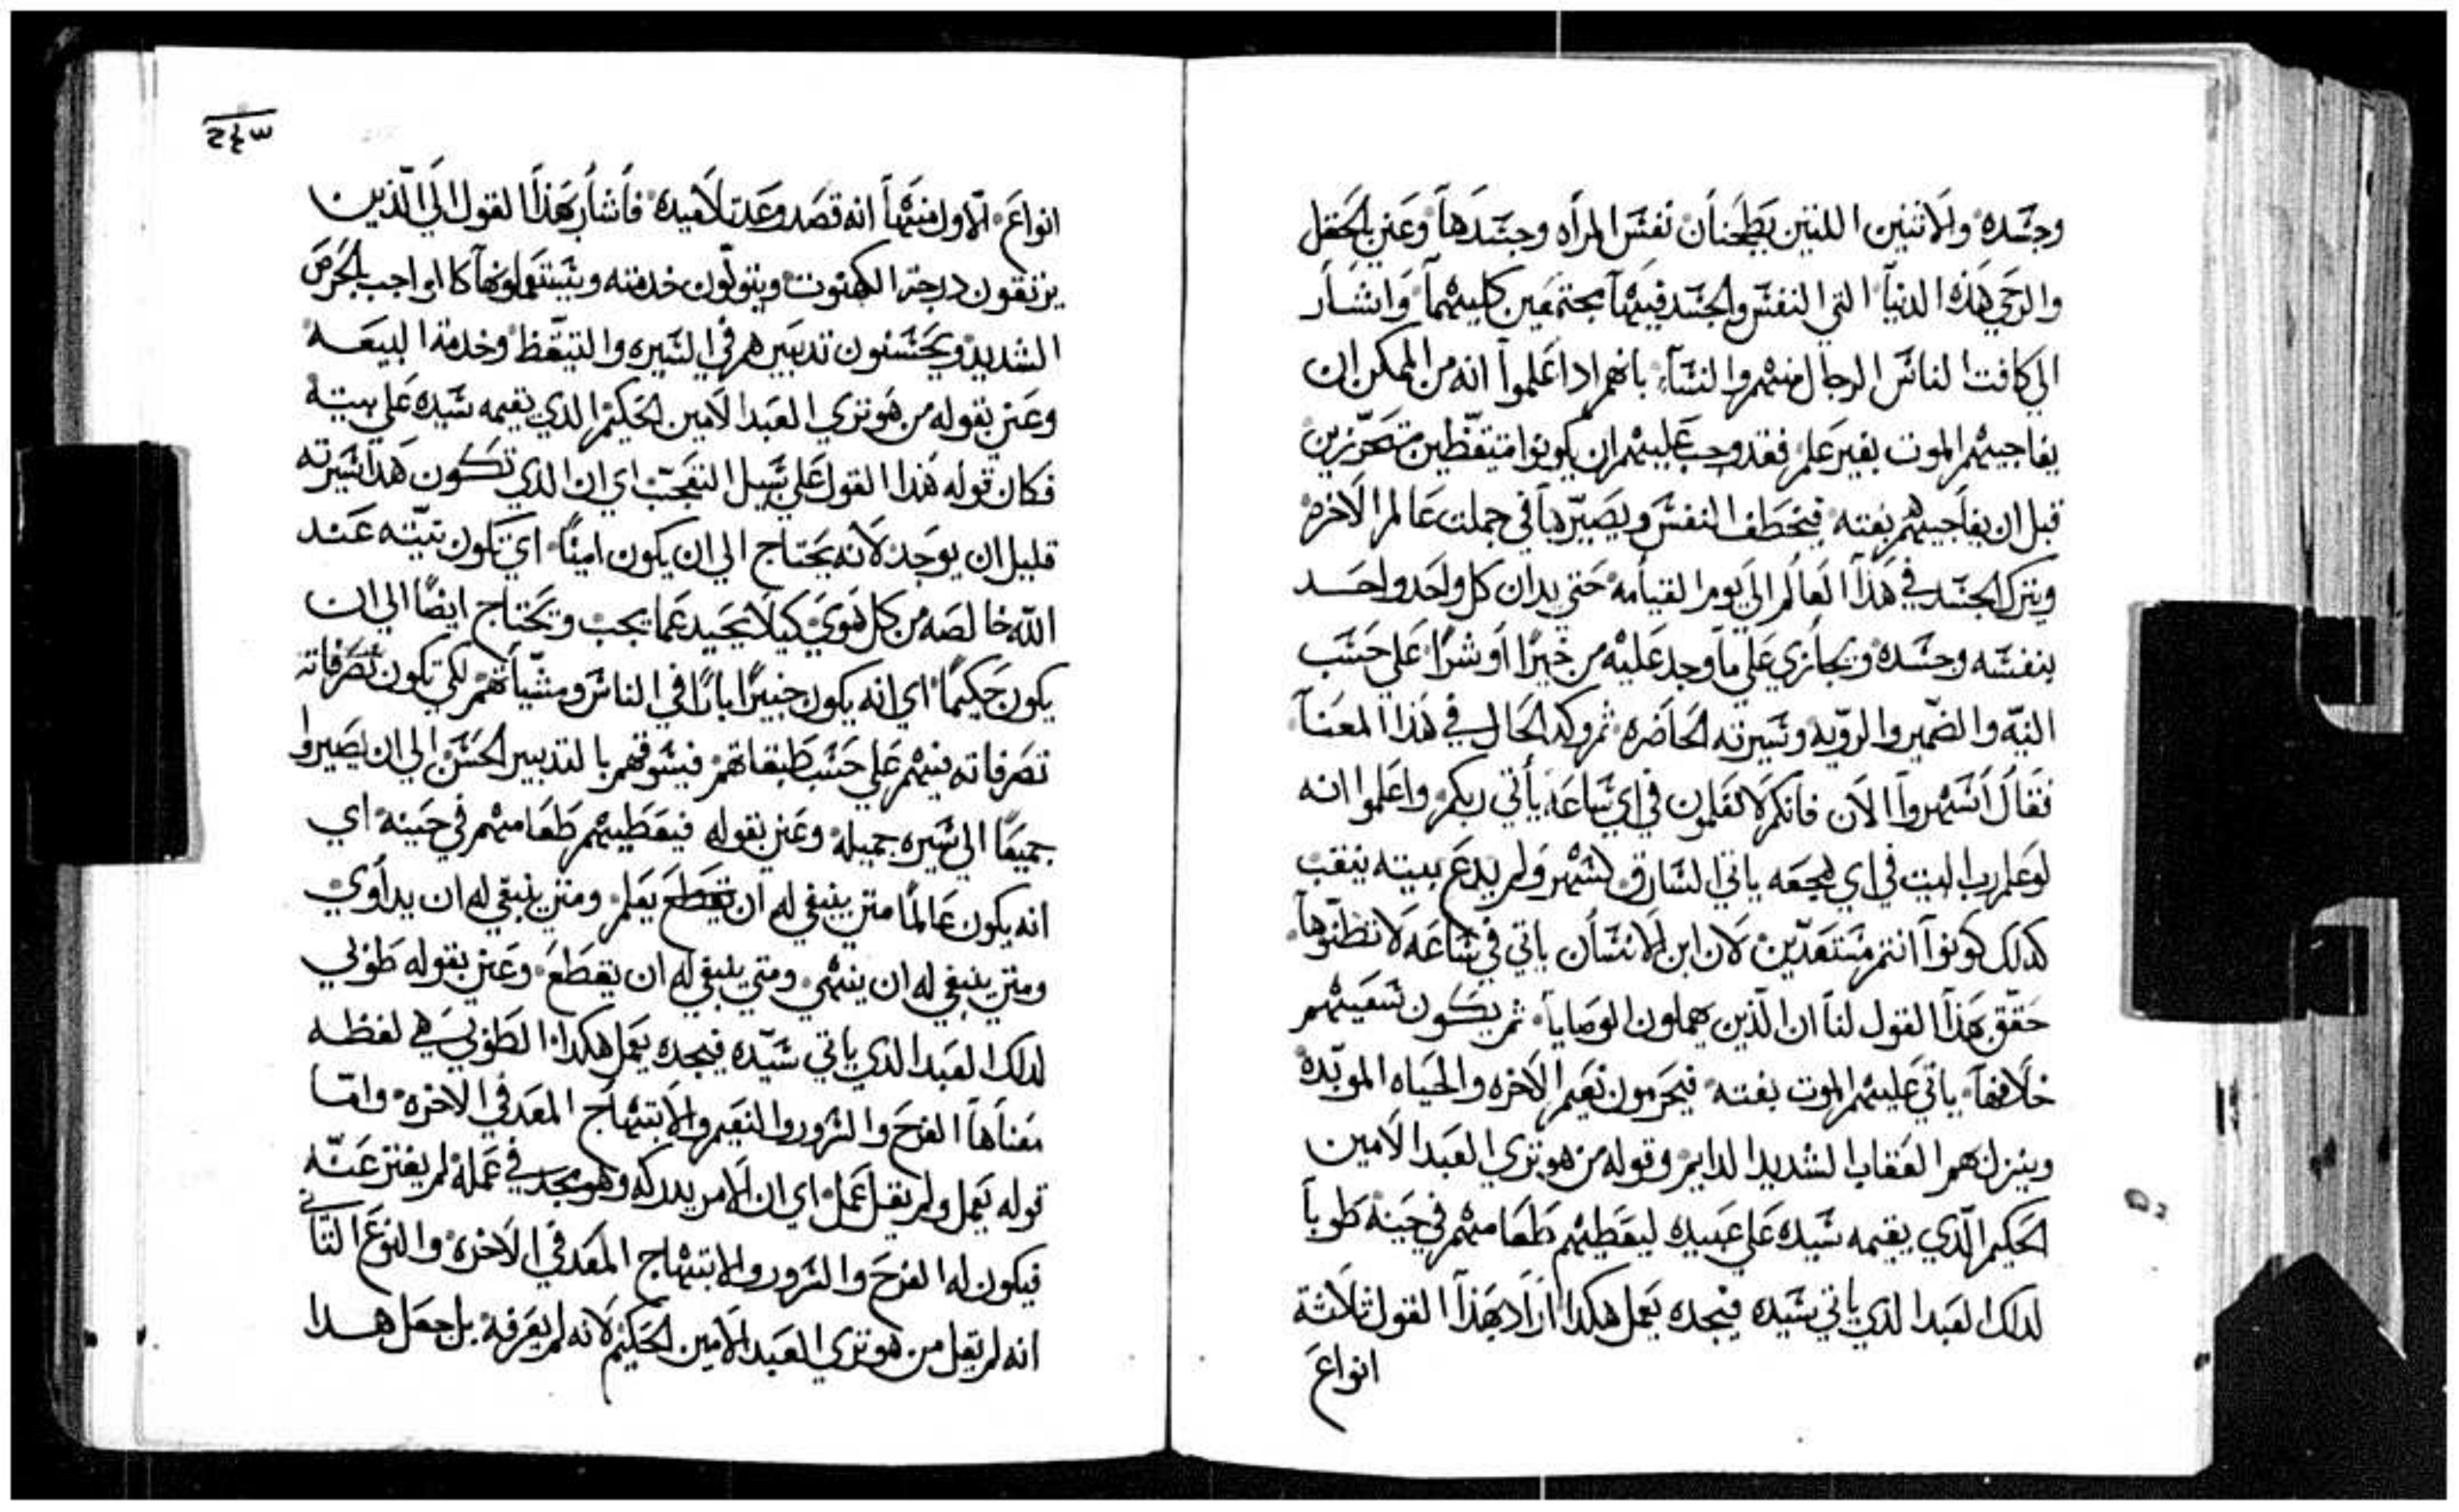 وجسده والاثنين اللتين يطحنان نفس المراه وجسدها وعني بالحقل
والرحي هذه الدنيا التي النفس والجسد فيها مجتمعين كليهما واشار
الي كافت الناس الرجال منهم والنساء بانهم ادا علموا انه من الممكن ان
يفاجيهم الموت بغير علم فقد وجب عليهم ان يكونوا متيقظين متحرزين
قبل ان يفاجيهم بغته فيخطف النفس ويصيرها في جملت عالم الاخره
ويترك الجسد في هذا العالم الي يوم القيامه حتي يدان كل واحد واحد
بنفسه وجسده ويجازي علي ما وجد عليه من خيرا او شرا علي حسب
النيه والضمير والرويه وسيرته الحاضره ثم وكد الحال في هذا المعنا
فقال اسهروا الان فانكم لا تعلمون في اي ساعه ياتي ربكم واعلموا انه
لو علم رب البيت في اي هجعه ياتي السارق لسهر ولم يدع بيته ينقب
كدلك كونوا انتم مستعدين لان ابن الانسان ياتي في ساعه لا تظنوها
حقق بهذا القول لنا ان الذين يهملون الوصايا ثم يكون سعيهم
خلافها ياتي عليهم الموت بغته فيحرمون نعيم الاخره والحياه الموبده
وينزل بهم العقاب الشديد الدايم وقوله من هو تري العبد الامين
الحكيم الذي يقيمه سيده علي عبيده ليعطيهم طعامهم في حينه طوبا
لدلك العبد الذي ياتي سيده فيجده يعمل هكدا اراد بهذا القول ثلاثة
انواع
٢٤٣
انواع الاول منها انه قصد وعد تلاميده فاشار بهذا القول الي الذين
يرتقون درجة الكهنوت ويتولون خدمته ويستعملونها كالواجب بالحرص
الشديد ويحسنون تدبيرهم في السيره والتيقظ وخدمة البيعه
وعني بقوله من هو تري العبد الامين الحكيم الدي يقيمه سيده علي بيته
فكان قوله هدا القول علي سبيل التعجب اي ان الدي تكون هدا سيرته
قليل ان يوجد لانه يحتاج الي ان يكون امينا اي تكون نيته عند
الله خالصه من كل هوي كيلا يحيد عما يجب ويحتاج ايضا الي ان
يكون حكيما اي انه يكون خبيرا بارا في الناس ومشياتهم لكي تكون تصرفاته
تصرفاته فيهم علي حسب طبقاتهم فيسوقهم بالتدبير الحسن الي ان يصيروا
جميعا الي سيره جميله وعني بقوله فيعطيهم طعامهم في حينه اي
انه يكون عالما متي ينبغي له ان يعلم ومتي ينبغي له ان يداوي
ومتي ينبغي له ان ينهي ومتي ينبغي له ان يقطع وعني بقوله طوبي
لدلك العبد الدي ياتي سيده فيجده يعمل هكدا الطوبي هي لفظه
معناها الفرح والسرور والنعيم والابتهاج المعد في الاخره واما
قوله يعمل ولم يقل عمل اي ان الامر يدركه وهو مجد في عمله لم يفتر عنه
فيكون له الفرح والسرور والابتهاج المعد في الاخره والنوع الثاني
انه لم يقل من هو تري العبد الامين الحكيم لانه لم يعرفه بل جعل هدا